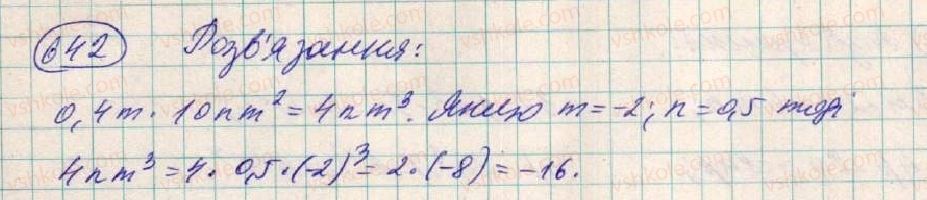 642 Розв'язання:
0,4m · 10nm² = 4nm³. Якщо m = -2; n = 0,5 тоді
4nm³ = 4 · 0,5 · (-2)³ = 2 · (-8) = -16.